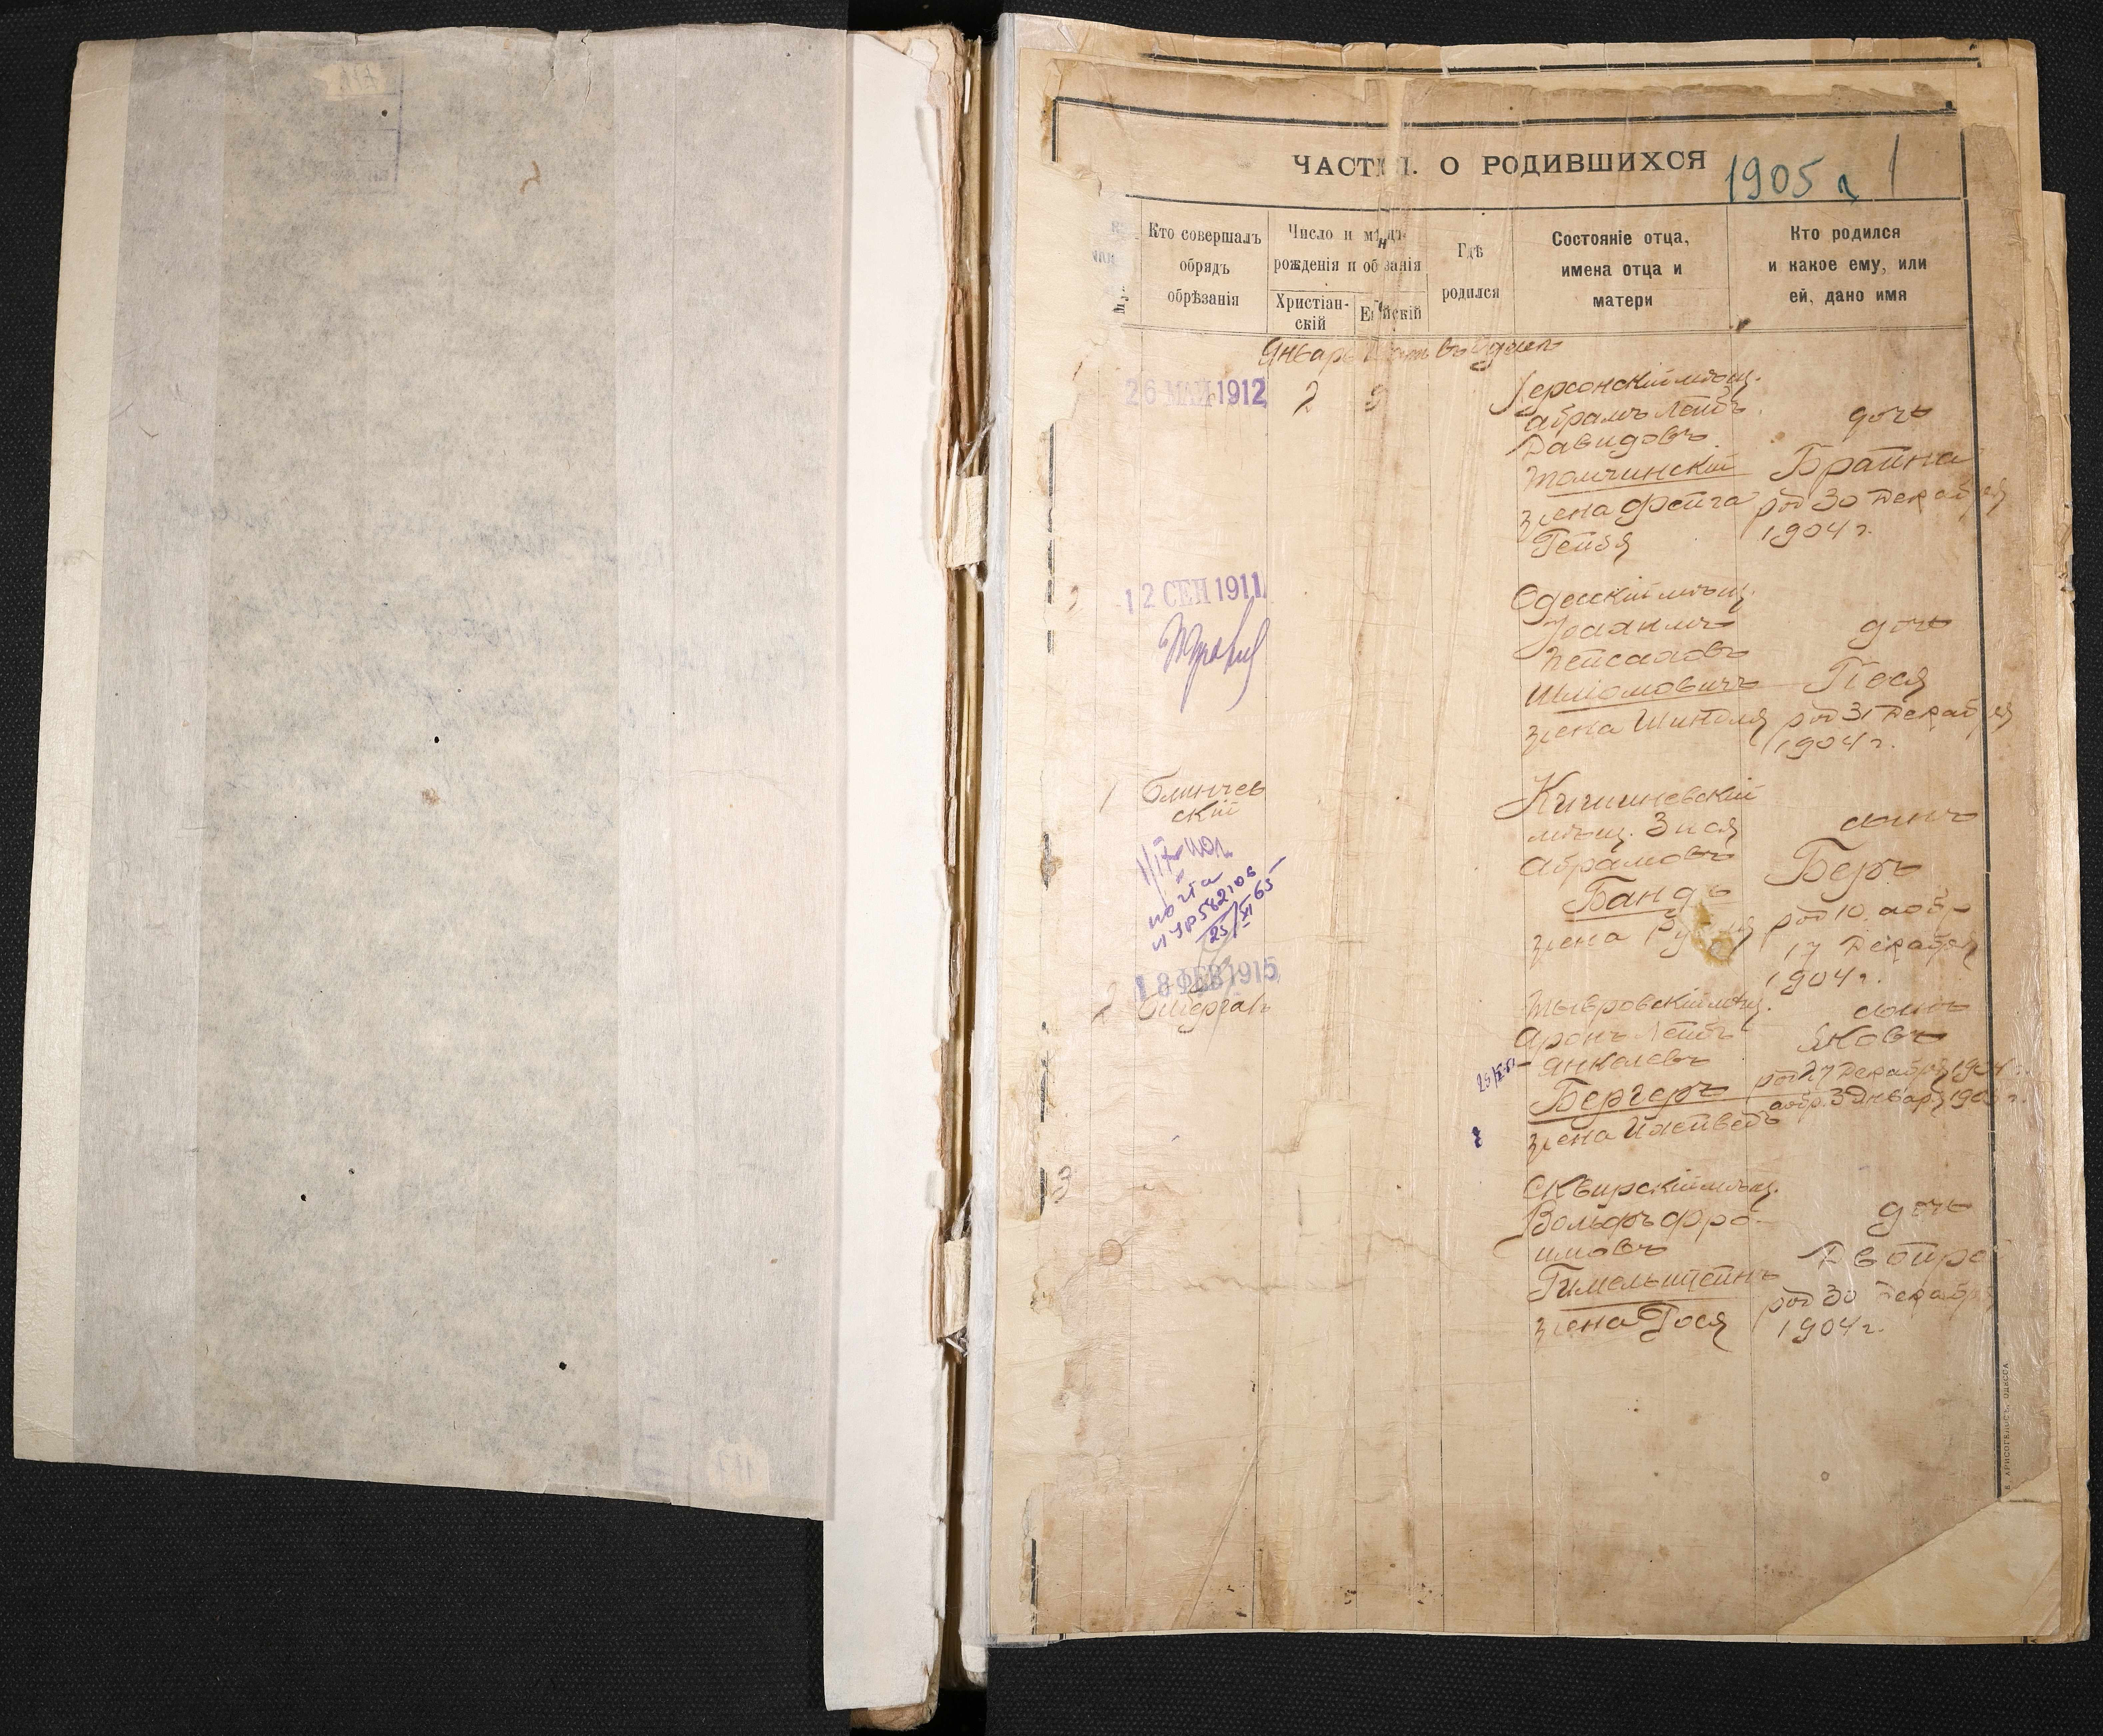 ЧАСТЬ I. О РОДИВШИХСЯ 1905 г 1
Кто совершалъ
обрядъ
обрѣзанія
Число и
рожденія и
Христіан-
скій
Гдѣ
родился
Состояніе отца,
имена отца и
матери
Кто родился
и какое ему, или
ей, дано имя
Январь въ Одессѣ
1
26 МАЙ 1912
2
Херсонскій мѣщ.
Абрамъ Лейбъ
Давидовъ
Томчинскій
жена Фейга
Гейся
дочь
Брайна
род 30 Декабря
1904 г.
2
12 СЕН 1911
Одесскій мѣщ.
Пейсаховъ
Шліомовичъ
жена Шиндля
дочь
Песя
род 31 Декабря
1904 г.
1
Блинчев
ский
почта
25/XI 65
Кишиневскій
мѣщ. Зися
Абрамовъ
Бандъ
жена
сынъ
Беръ
род 10. аобр
17 Декабря
1904 г.
2
18 ФЕВ 1915
Тывровскій мѣщ.
Аронъ Лейбъ
Янкелевъ
Бергеръ
жена
сынъ
Яковъ
род 27 Декабря 1904 г.
аобр. 3 Января 1905 г.
3
Сквирскій мѣщ.
Вольфъ Фро-
имовъ
Гимельштейнъ
жена Гося
дочь
Двойра
род 30 Декабря
1904 г.